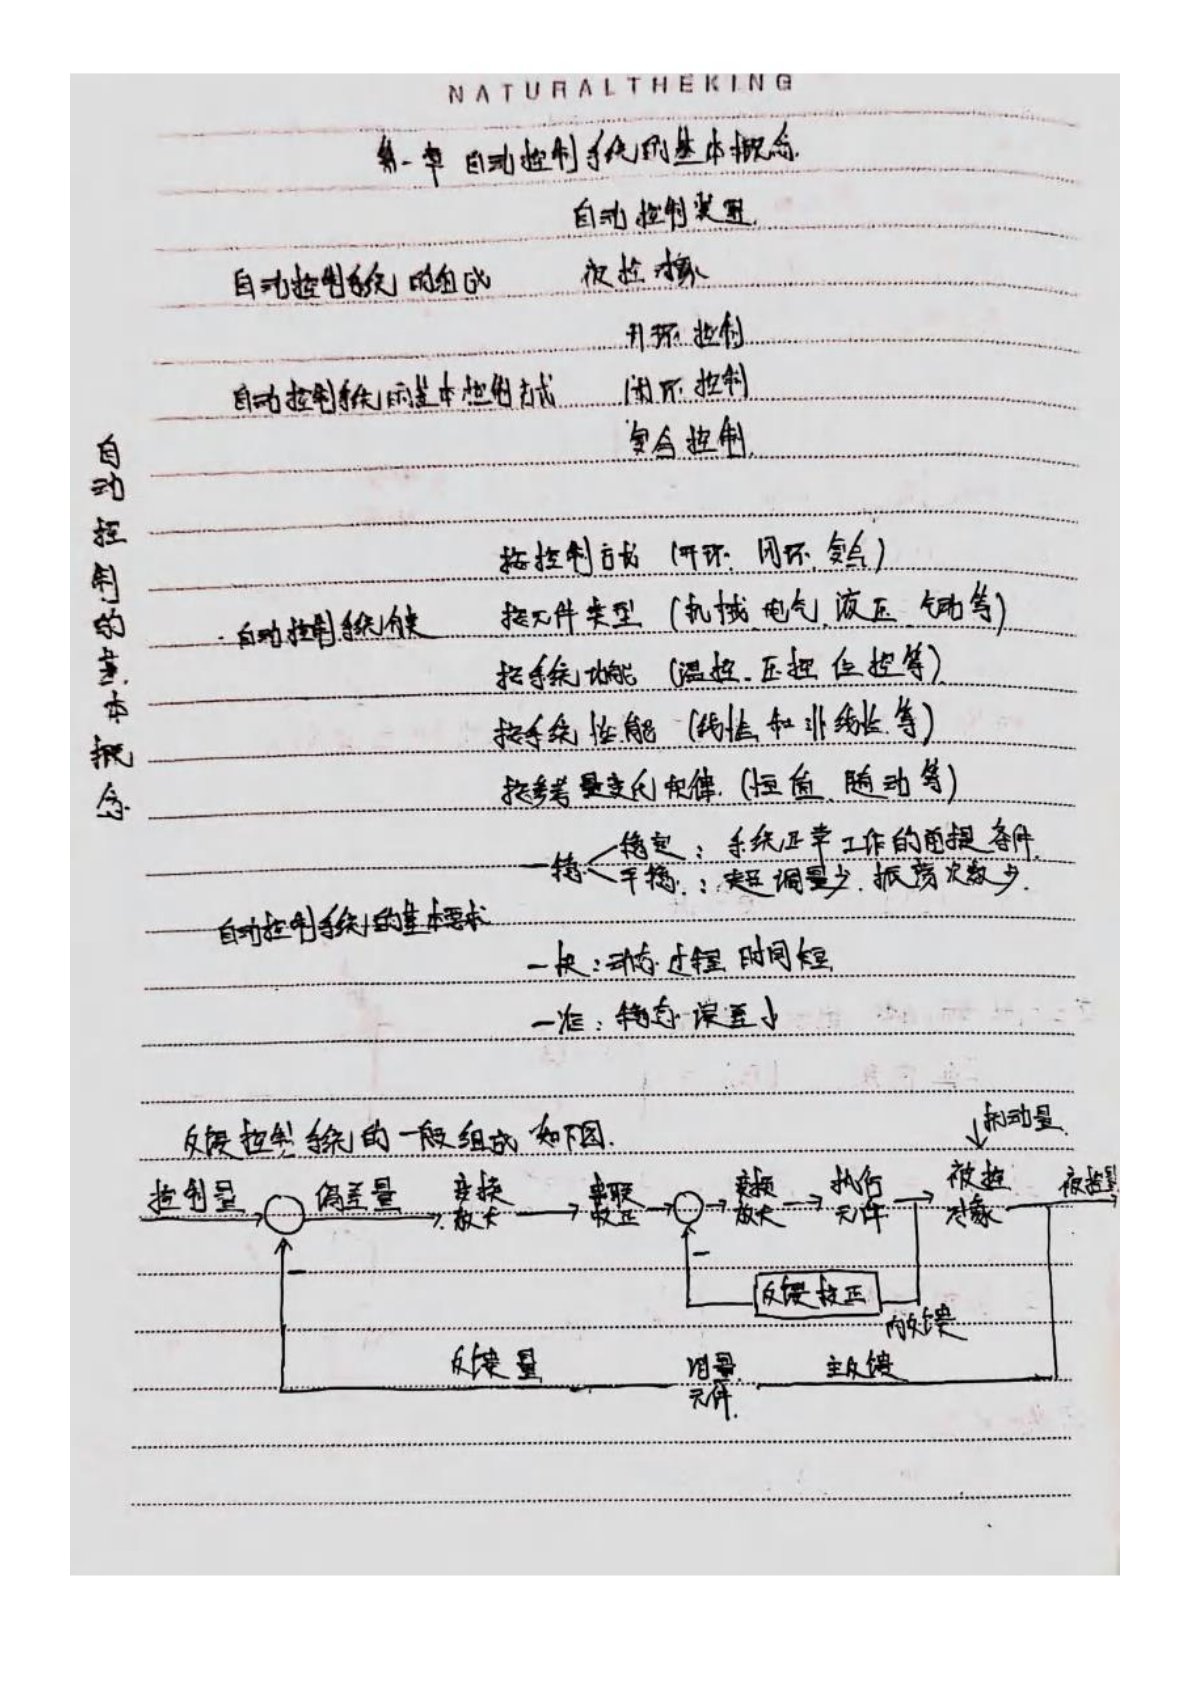 NATURALTHEKING
第一章 自动控制系统的基本概念.
自动控制装置.
自动控制系统的组成 被控对象
开环控制
自动控制系统的基本控制方式 闭环控制
复合控制.
自动控制的基本概念
按控制方式 (开环、闭环、复合)
自动控制系统分类 按元件类型 (机械、电气、液压、气动等)
按系统功能 (温控、压控、位控等)
按系统性能 (线性和非线性等)
按参考量变化规律. (恒值、随动等)
一稳 稳定: 系统正常工作的前提条件.
平稳: 超调量少. 振荡次数少.
自动控制系统的基本要求
一快: 动态过程时间短
一准: 稳态误差小
反馈控制系统的一般组成如下图.
扰动量
控制量 偏差量 变换放大 串联校正 变换放大 执行元件 被控对象 被控量
反馈校正
内反馈
反馈量 测量元件. 主反馈